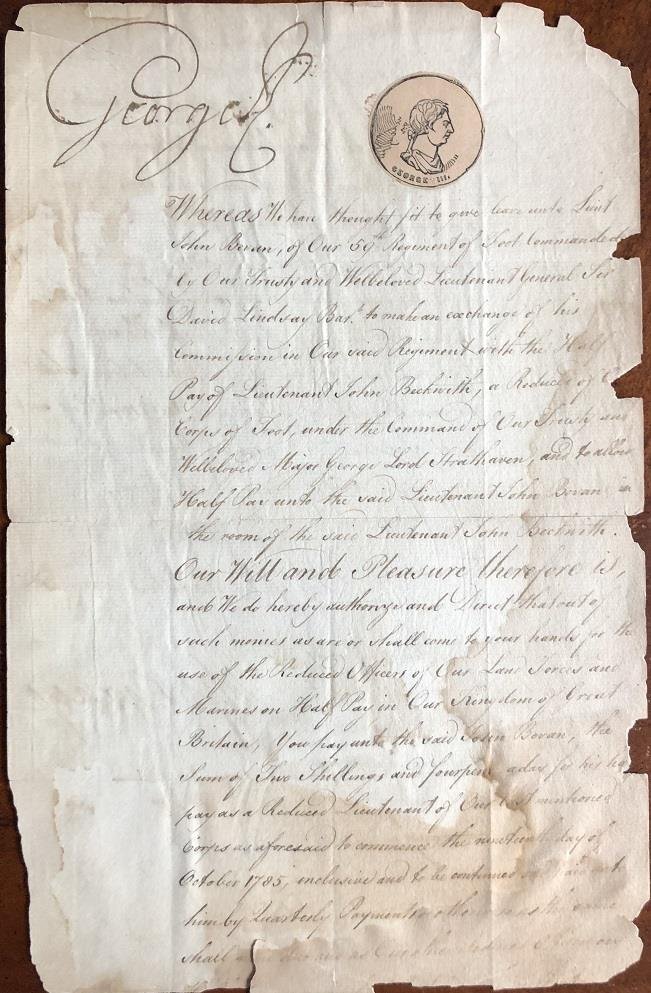 George R.
GEORGE III.
Whereas We have thought fit to give leave unto Lieut
John Bevan, of Our 59th Regiment of Foot Commanded
by Our Trusty and Welbeloved Lieutenant General Sir
David Lindsay Bart. to make an exchange of his
Commission in Our said Regiment with the Half
Pay of Lieutenant John Beckwith, a Reduced
Corps of Foot, under the Command of Our Trusty and
Welbeloved Major George Lord Strathaven, and to allow
Half Pay unto the said Lieutenant John Bevan in
the room of the said Lieutenant John Beckwith.
Our Will and Pleasure therefore is,
and We do hereby authorize and Direct that out of
such monies as are or shall come to your hands for the
use of the Reduced Officers of Our Land Forces and
Marines on Half Pay in Our Kingdom of Great
Britain, You pay unto the said John Bevan, the
Sum of Two Shillings and fourpence a day for his
pay as a Reduced Lieutenant of Our last mentioned
Corps as aforesaid to commence the nineteenth day of
October 1785, inclusive and to be continued and paid unto
him by Quarterly Payments or otherwise as the same
shall due and as Our other Reduced Officers are